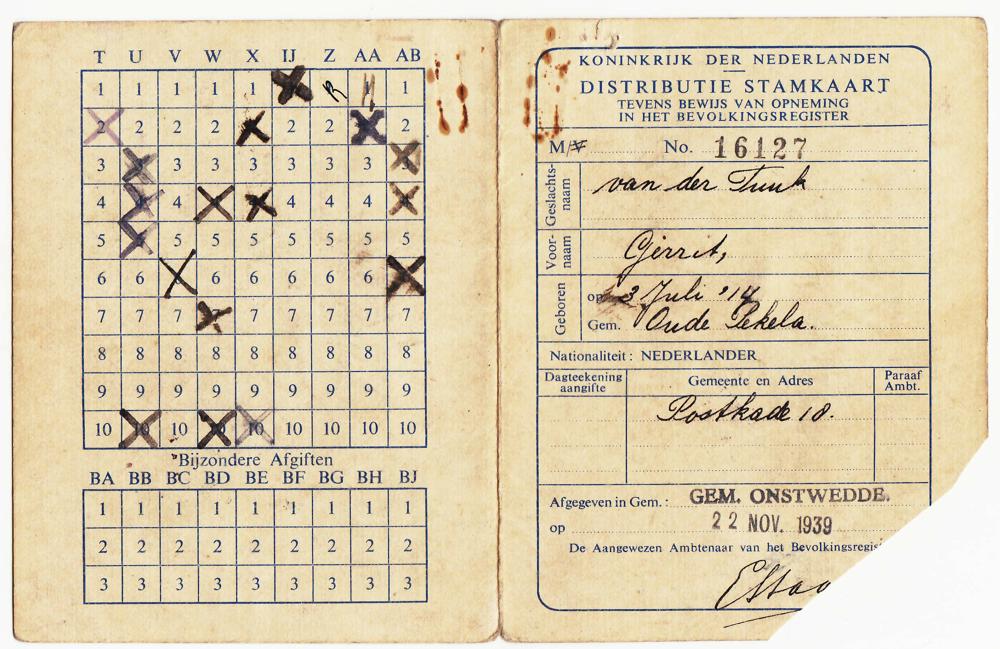 T U V W X IJ Z AA AB
1 1 1 1 1 1
2 2 2 2 2 2 2
3 3 3 3 3 3 3
4 4 4 4 4
5 5 5 5 5 5 5 5
6 6 6 6 6 6 6
7 7 7 7 7 7 7 7
8 8 8 8 8 8 8 8 8
9 9 9 9 9 9 9 9 9
10 10 10 10 10 10 10 10 10
Bijzondere Afgiften
BA BB BC BD BE BF BG BH BJ
1 1 1 1 1 1 1 1 1
2 2 2 2 2 2 2 2 2
3 3 3 3 3 3 3 3 3
KONINKRIJK DER NEDERLANDEN
DISTRIBUTIE STAMKAART
TEVENS BEWIJS VAN OPNEMING
IN HET BEVOLKINGSREGISTER
M/V No. 16127
Geslachts-
naam
van der Tuuk
Voor-
naam
Gerrit,
Geboren
op 3 Juli '14
Gem. Oude Pekela.
Nationaliteit: NEDERLANDER
Dagteekening
aangifte
Gemeente en Adres
Paraaf
Ambt.
Postkade 18.
Afgegeven in Gem.: GEM. ONSTWEDDE.
op 22 NOV. 1939
De Aangewezen Ambtenaar van het Bevolkingsregis